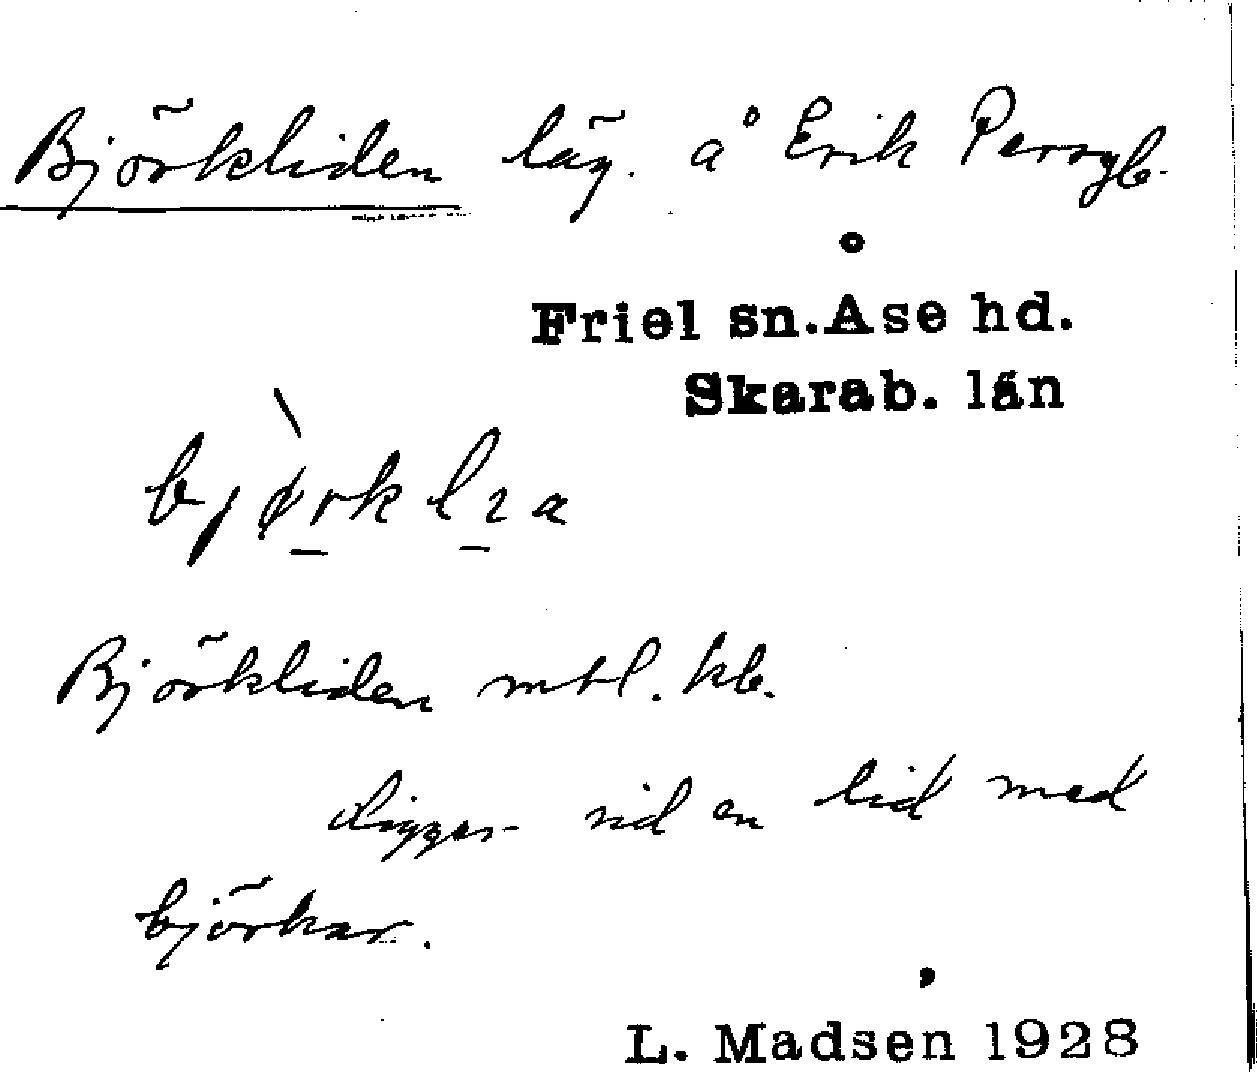 Björkliden läg. å Erik Persgb.
Friel sn. Åse hd.
Skarab. län
Björkliden mtl. kb.
Ligger vid en lid med
björkar.
L. Madsen 1928